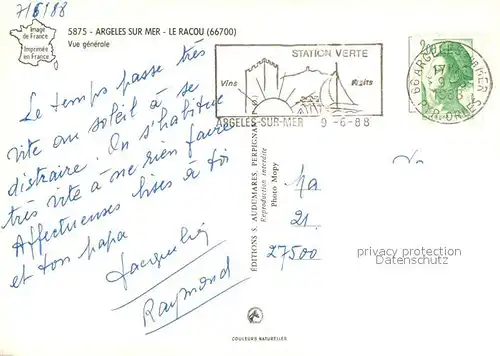 7/6/88
Image
de France
Imprimée
en France
5875 - ARGELES SUR MER - LE RACOU (66700)
Vue générale
STATION VERTE
Vins
Fruits
ARGELES-SUR-MER 9-6-88
2,00
66 ARGELES S/MER
17 H
9-6
1988
PYR. ORLES
Le temps passe très
vite au soleil à se
distraire. On s'habitue
très vite à ne rien faire
Affectueuses bises à toi
et ton papa
Jacqueline
Raymond
ÉDITIONS S. AUDUMARES, PERPIGNAN
Reproduction interdite
Photo Mopy
21.
27500
privacy protection
Datenschutz
COULEURS NATURELLES